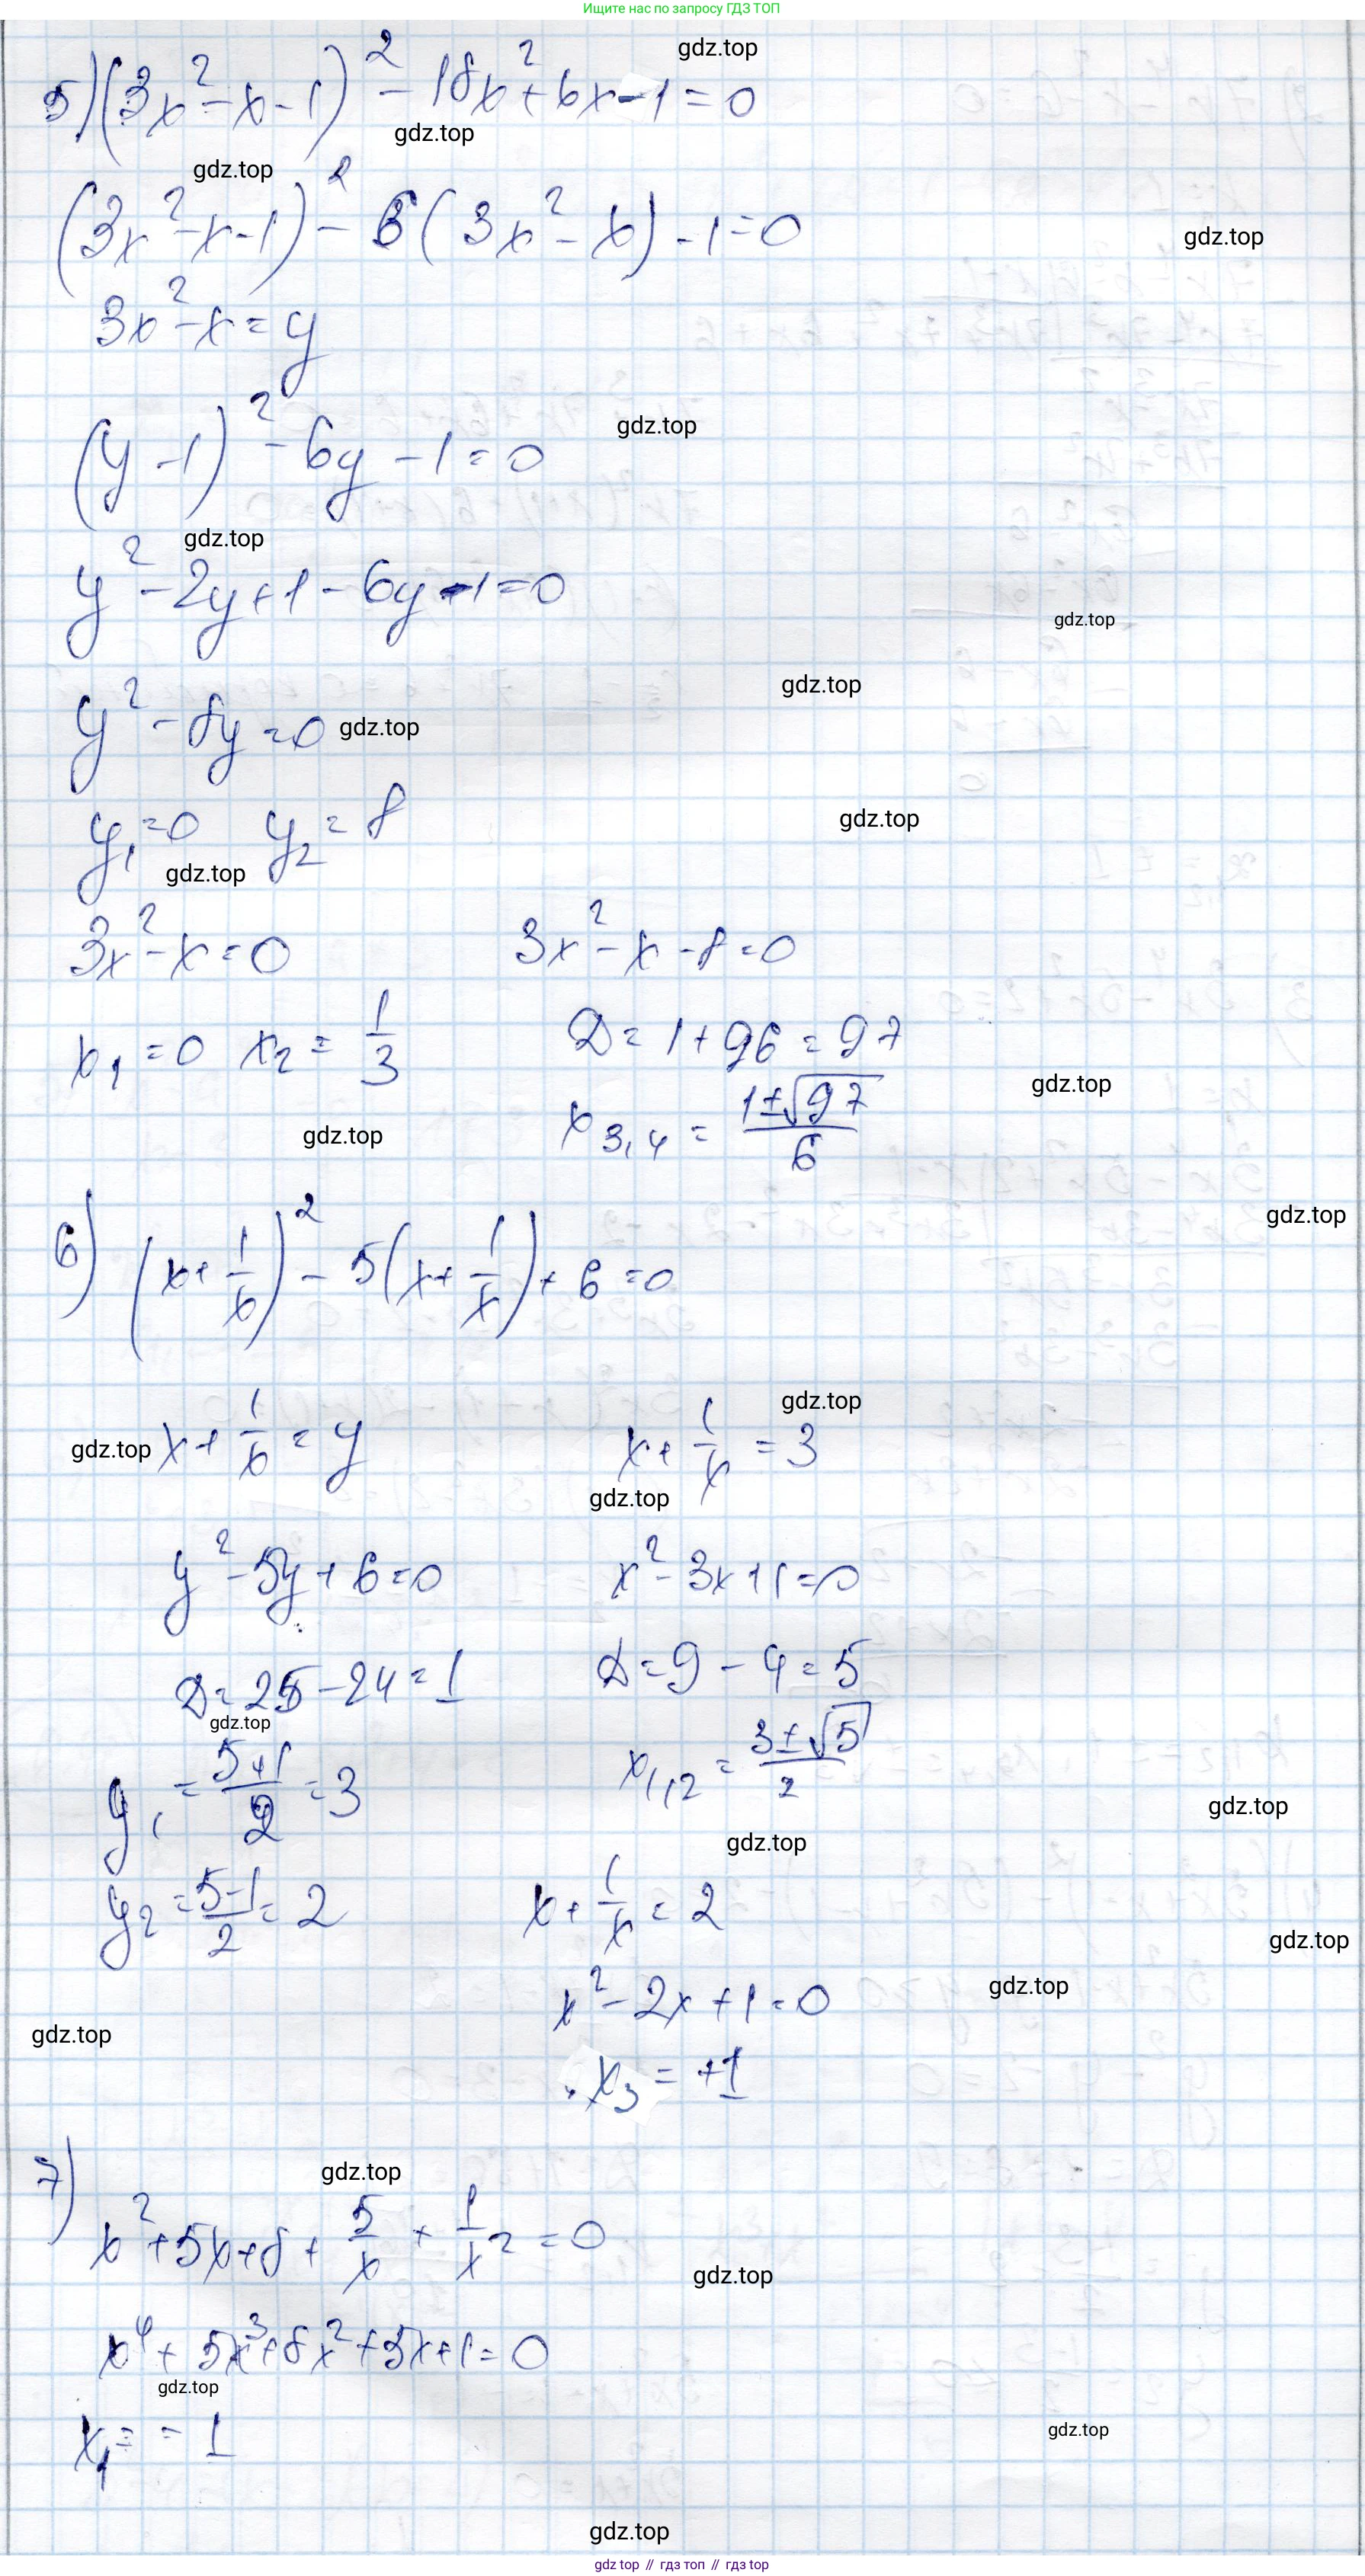 Ищите нас по запросу ГДЗ ТОП
5) (3x² - x - 1)² - 18x² + 6x - 1 = 0
gdz.top
gdz.top
gdz.top
(3x² - x - 1)² - 6(3x² - x) - 1 = 0
gdz.top
3x² - x = y
gdz.top
(y - 1)² - 6y - 1 = 0
gdz.top
y² - 2y + 1 - 6y - 1 = 0
gdz.top
gdz.top
y² - 8y = 0
gdz.top
y₁ = 0 y₂ = 8
gdz.top
gdz.top
3x² - x = 0 3x² - x - 8 = 0
x₁ = 0 x₂ = 1/3 D = 1 + 96 = 97
gdz.top
gdz.top
x₃,₄ = (1 ± √97)/6
gdz.top
6) (x + 1/x)² - 5(x + 1/x) + 6 = 0
gdz.top
gdz.top
x + 1/x = y x + 1/x = 3
gdz.top
y² - 5y + 6 = 0 x² - 3x + 1 = 0
D = 25 - 24 = 1 D = 9 - 4 = 5
gdz.top
y₁ = (5 + 1)/2 = 3 x₁,₂ = (3 ± √5)/2
gdz.top
gdz.top
y₂ = (5 - 1)/2 = 2 x + 1/x = 2
gdz.top
gdz.top
x² - 2x + 1 = 0
gdz.top
x₃ = +1
7)
gdz.top
x² + 5x + 8 + 5/x + 1/x² = 0
gdz.top
x⁴ + 5x³ + 8x² + 5x + 1 = 0
gdz.top
x₁ = -1
gdz.top
gdz.top
gdz top // гдз топ // гдз top